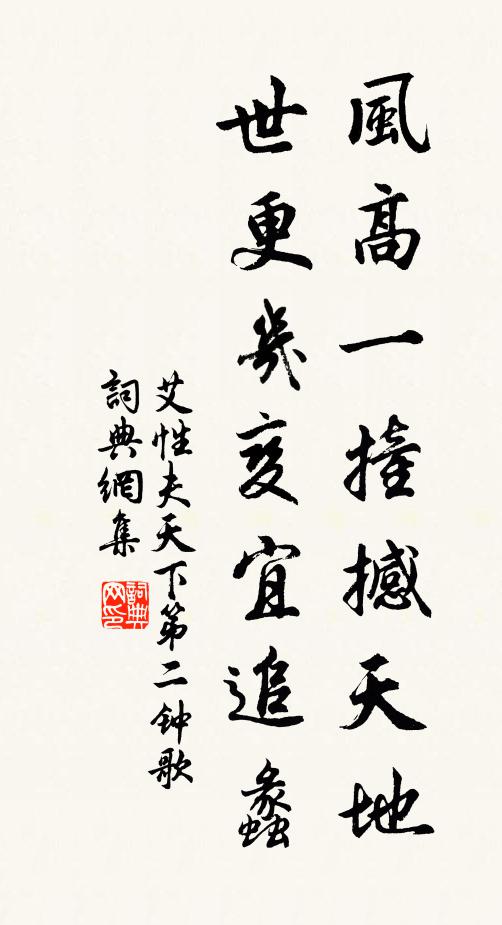 風高一撞撼天地
世更幾變宜追蠡
艾性夫天下第二钟歌
詞典網集
詞典网印